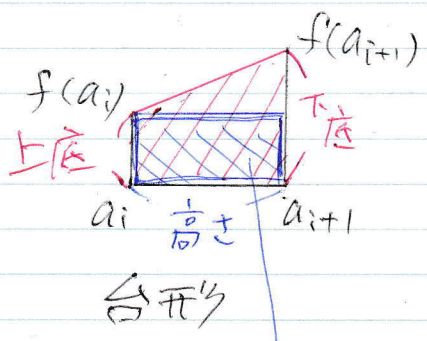 f(a_{i+1})
f(a_i)
上底
下底
a_i
高さ
a_{i+1}
台形